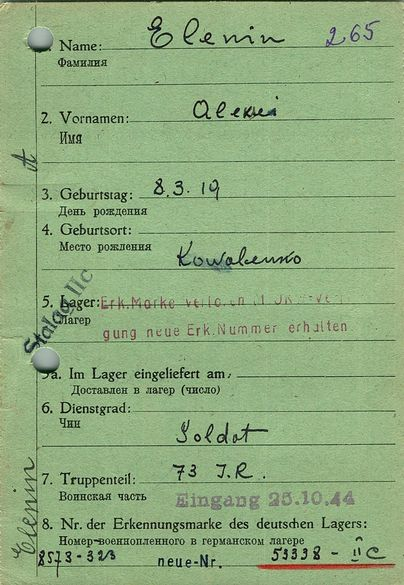 265
1. Name: Elenin
Фамилия
2. Vornamen: Alexei
Имя
A
3. Geburtstag: 8.3.19
День рождения
4. Geburtsort:
Место рождения
Kowalenko
Stalag IIc
5. Lager: Erk.Marke verloren
Лагер
gung neue Erk.Nummer erhalten.
5a. Im Lager eingeliefert am:
Доставлен в лагер (число)
6. Dienstgrad:
Чин
Soldat
7. Truppenteil: 73 J.R.
Воинская часть
Eingang 25.10.44
Elenin
8. Nr. der Erkennungsmarke des deutschen Lagers:
Номер-военнопленного в германском лагере
8573-323 neue-Nr. 53338-II C